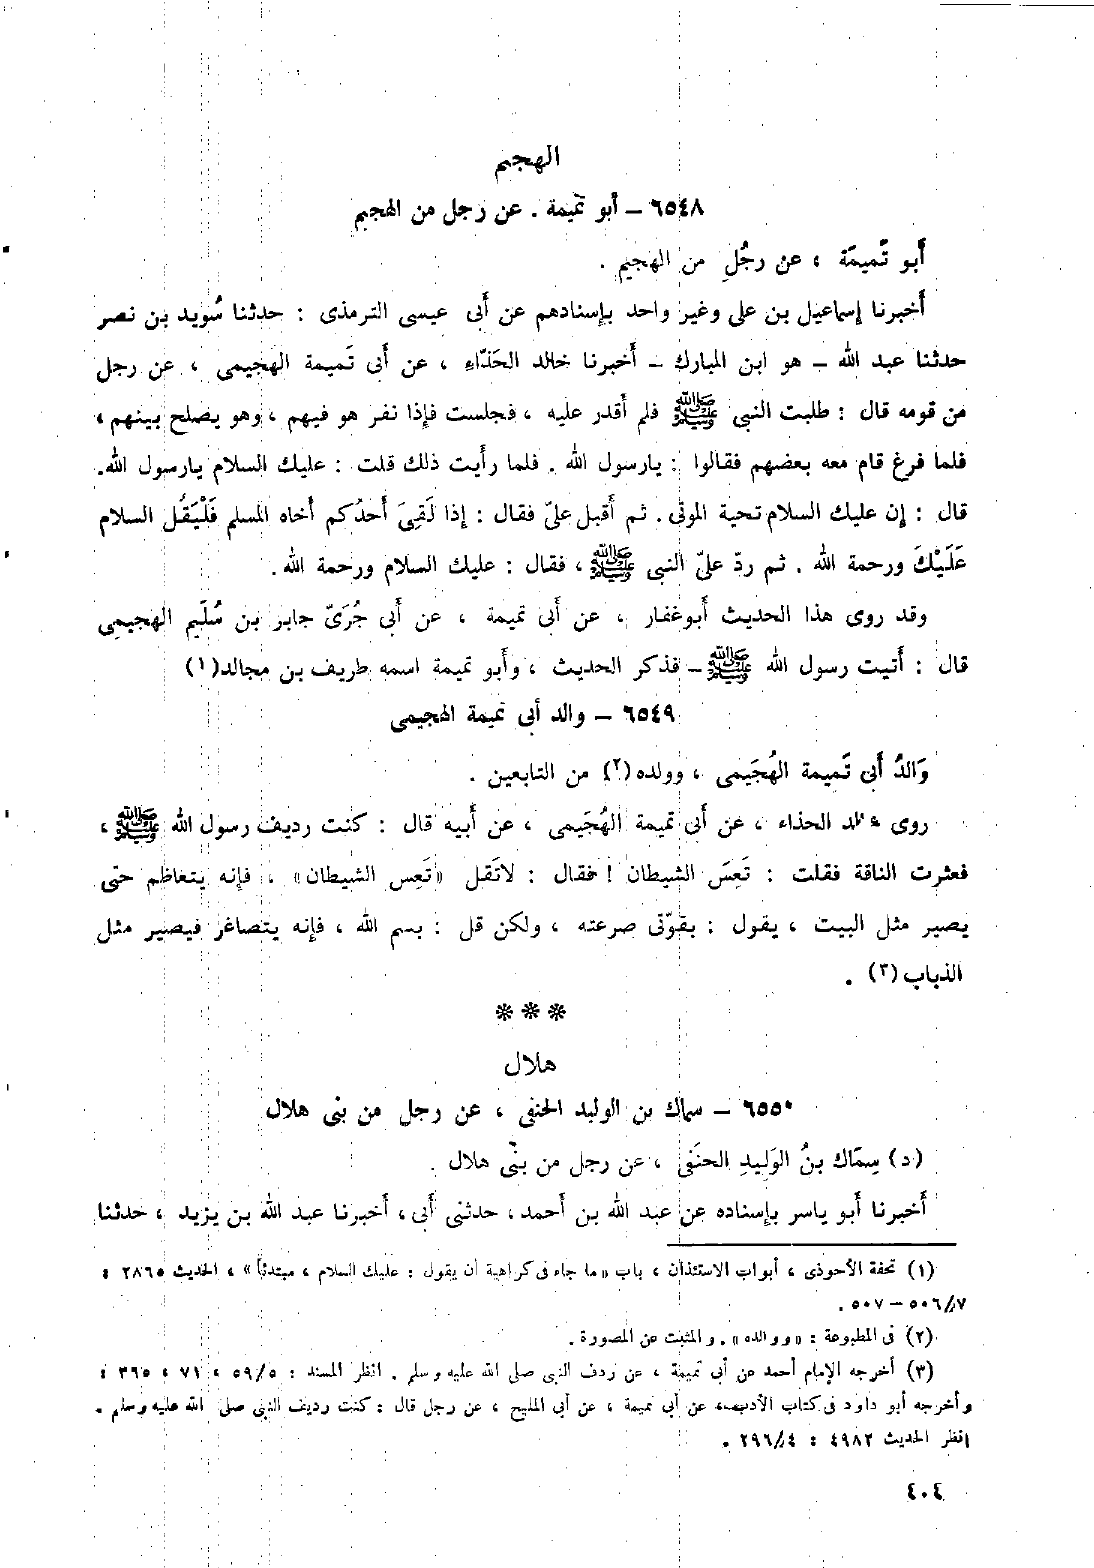 الهجيم
٦٥٤٨ – أبو تميمة . عن رجل من الهجيم
أَبو تَميمَة ، عن رجُلٍ من الهجيم .
أَخبرنا إسماعيل بن على وغير واحد بإسنادهم عن أَبى عيسى الترمذى : حدثنا سُويد بن نصر
حدثنا عبد الله – هو ابن المبارك – أَخبرنا خالد الحَذّاءِ ، عن أَبى تَميمة الهجيمى ، عن رجل
من قومه قال : طلبت النبى ﷺ فلم أَقدر عليه ، فجلست فإذا نفر هو فيهم ، وهو يصلح بينهم ،
فلما فرغ قام معه بعضهم فقالوا : يارسول الله . فلما رأَيت ذلك قلت : عليك السلام يارسول الله.
قال : إن عليك السلام تحية الموتى . ثم أَقبل علىّ فقال : إذا لَقِىَ أَحدُكم أَخاه المسلم فَلْيَقُل السلام
عَلَيْكَ ورحمة الله . ثم ردّ علىّ النبى ﷺ ، فقال : عليك السلام ورحمة الله .
وقد روى هذا الحديث أَبوغفار ، عن أَبى تميمة ، عن أَبى جُرَىّ جابر بن سُلَيم الهجيمى
قال : أَتيت رسول الله ﷺ – فذكر الحديث ، وأَبو تميمة اسمه طريف بن مجالد(١)
٦٥٤٩ – والد أبى تميمة الهجيمى
وَالدُ أَبى تَميمة الهُجَيمى ، وولده(٢) من التابعين .
روى خالد الحذاء ، عن أَبى تميمة الهُجَيمى ، عن أَبيه قال : كنت رديف رسول الله ﷺ ،
فعثرت الناقة فقلت : تَعِسَ الشيطان ! فقال : لاتَقل «تَعِس الشيطان» ، فإنه يتعاظم حتى
يصير مثل البيت ، يقول : بقوّتى صرعته ، ولكن قل : بسم الله ، فإنه يتصاغر فيصير مثل
الذباب(٣) .
***
هلال
٦٥٥٠ – سماك بن الوليد الحنفى ، عن رجل من بنى هلال
(د) سِمَاك بنُ الوَلِيدِ الحنَفى ، عن رجل من بنْى هلال .
أَخبرنا أَبو ياسر بإسناده عن عبد الله بن أَحمد ، حدثنى أَبى ، أَخبرنا عبد الله بن يزيد ، حدثنا
(١) تحفة الأحوذى ، أبواب الاستئذان ، باب « ما جاء فى كراهية أن يقول : عليك السلام ، مبتدئاً » ، الحديث ٢٨٦٥ :
٧/ ٥٠٦ – ٥٠٧ .
(٢) فى المطبوعة : « ووالده » . والمثبت عن المصورة .
(٣) أخرجه الإمام أحمد عن أبى تميمة ، عن ردف النبى صلى الله عليه وسلم . انظر المسند : ٥/ ٥٩ ، ٧١ ، ٣٦٥ :
وأخرجه أبو داود فى كتاب الأدب، عن أبى تميمة ، عن أبى المليح ، عن رجل قال : كنت رديف النبى صلى الله عليه وسلم .
انظر الحديث ٤٩٨٢ : ٤/ ٢٩٦ .
٤٠٤